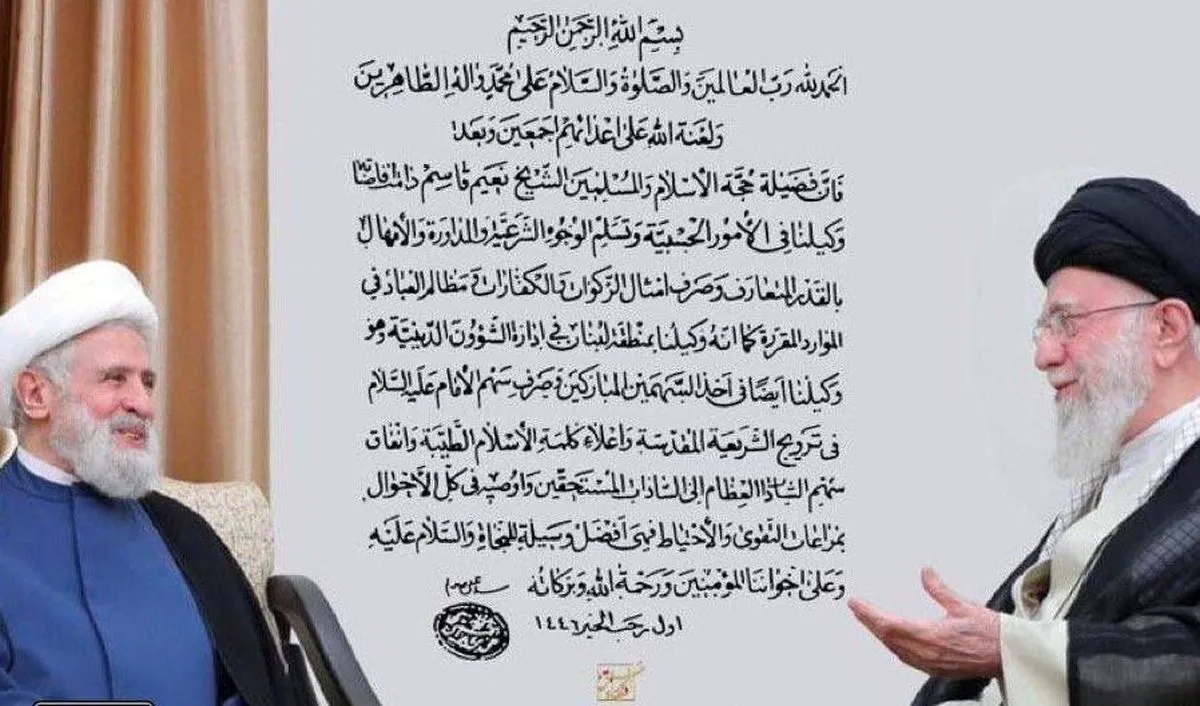 بِسْمِ اللهِ الرَّحْمَنِ الرَّحِيْمِ
الحمد لله رَبِّ العالمينَ وَالصَّلوٰةُ وَالسَّلامُ عَلىٰ مُحَمَّدٍ وَالِهِ الطَّاهِرِينَ
وَلَعْنَة الله عَلىٰ اعْدائِهِم اَجمَعينَ وَبَعد:
فَاِنَّ فَضيلة حُجَّة الاِسْلامِ وَالمُسْلِمينَ الشَّيخ نَعيم قاسِم دامَت افاضاته
وَكيلنا فى الأُمُور الحِسْبِيَّة وَتَسَلُّمِ الوُجُوهِ الشَّرعيَّة وَالمداورة وَالأمهال
بالقَدْرِ المتعارف وَصَرفِ امثال الزَّكوات وَالكفّارات وَ مَظالم العِبادِ في
الموارد المقررة كما انَّهُ وَكيلُنا بمنطقة لبنان في اِدارة الشُّؤُون الدّينيَّة وهو
وَكيلُنا ايضًا فى اَخذ السَّهمين المباركين وَ صَرفِ سَهم الاِمام عَلَيه السَّلام
فى تَرويج الشَّريعة المقدّسة وَ اعلاء كلمة الاسلام الطَّيّبة وَ انفاق
سَهم السّادة العِظام اِلىَ السّادات المُسْتَحقّين وَ اوصيه فى كلّ الأَحْوال
بمراعات التَّقوى وَالأحتياط فَهِىَ اَفضَل وَسيلة للنجاة وَالسَّلام عَلَيهِ
وَعَلىٰ اِخواننا المؤمنين وَ رَحمة الله وَ بَرَكاتُه
اول رجَب الخير ١٤٤٦